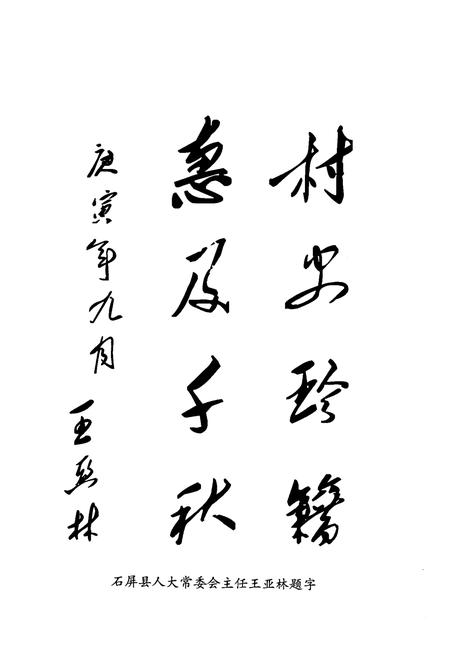 村史珍籍
惠及千秋
庚寅年九月
王亚林
石屏县人大常委会主任王亚林题字